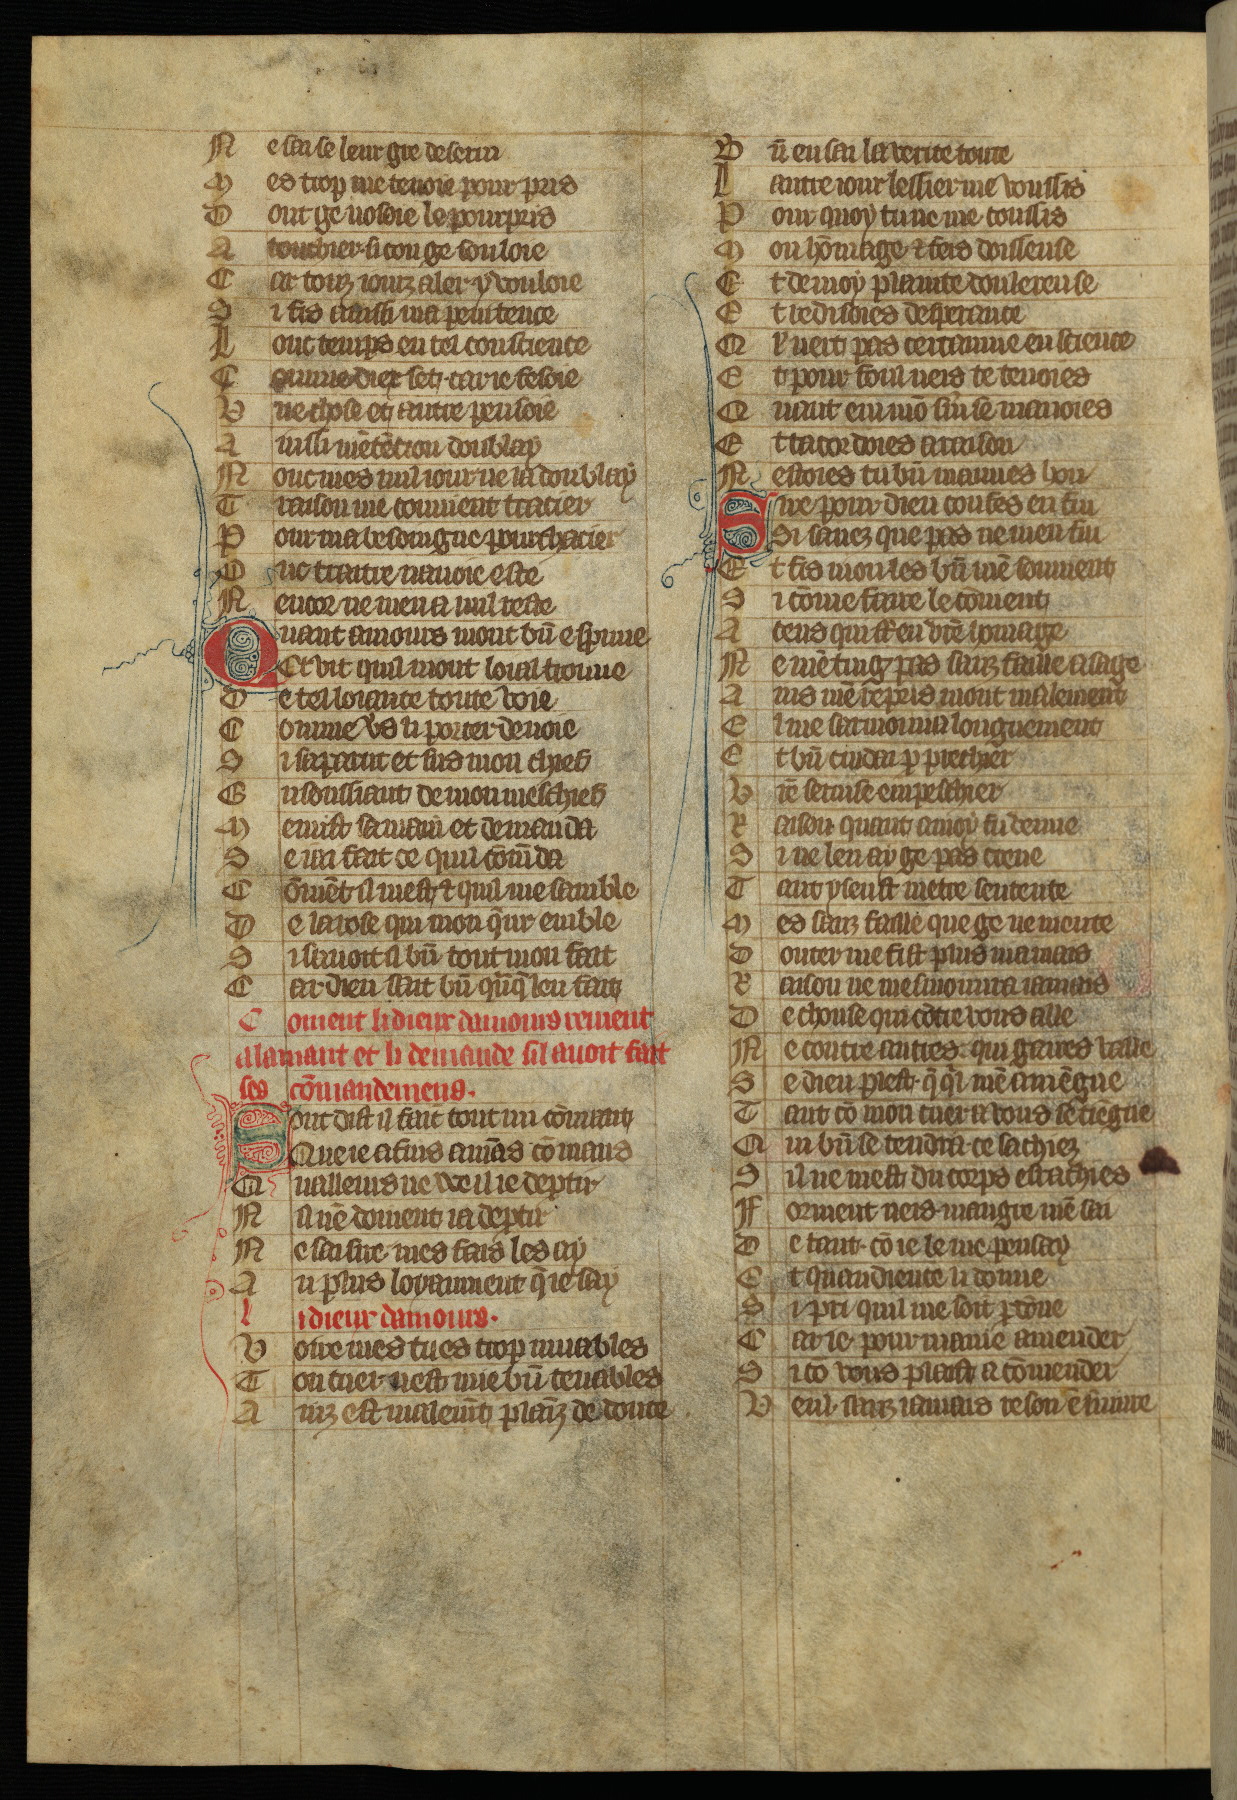 N e sai se leur gre deservi
M es trop me tenoie pour pris
D ont ge nosoie le pourpris
A touchier si con ge souloie
C ar touz iourz aler y vouloie
S i fis ainsi ma penitence
L onc temps en tel conscience
C omme diex set. car ie fesoie
V ne chose et autre pensoie
A insi mētēcion doublay
N onc mes nul iour ne la doublay
T raison me convient tracier
P our ma besoingne pourchacier
O nc traitre navoie este
N encor ne men a nul reste
Quant amours mont bn̄ esprouve
Et vit quil mout loial trouve
D e tel loiaute toute voie
C omme vs li porter devoie
S i saparut et sus mon chief
E n sousriant de mon meschief
M e mist sa main et demanda
S e iai fait ce quil cōmāda
C ōmēt il mest ⁊ quil me samble
D e la rose qui mon cuer emble
S i savoit il bn̄ tout mon fait
C ar dieu scait bn̄ qūq̄ len fait
C oment li dieux damours revient
a lamant et li demande sil avoit fait
ses cōmandemens.
Sont dist il fait tout mi cōmant
Que ie a fins amās cōmans
Q uailleurs ne vœil ie deptir
N il nē doivent ia deptir
N e sai sire. mes fais les ay
A u plus loyaument q̄ ie say
l i dieux damours.
V oire mes tu es trop muables
T on cuer nest mie bn̄ tenables
A inz est malemēt plaīz de doute
B n̄ en sai la verite toute
L autre iour lessier me voussis
P our quoy tu ne me toussis
M on hōmage ⁊ feis doisseuse
E t de moy plainte doulereuse
E t redisoies desperance
Q l nert pas certainne en science
E t pour foul neis te tenoies
Q uant en mō s̄vise manoies
E t tacordoies a raison
N estoies tu bn̄ mauves hon
Sire pour dieu confes en fui
Si savez que pas ne men fui
E t fis mon les bn̄ mē souvient
S i cōme faire le cōvient
A ceus qui st̄ en vrē homage
N e mē tīg pas sanz faille a sage
A ins mē repris mont malement
E l me sarmonna longuement
E t bn̄ cuidai p̄ preschier
V rē servise empeschier
R aison quant a moy fu venue
S i ne len ay ge pas creue
T ant y seust metre sentente
M es sanz faille que ge ne mente
D outer me fist plus ma mais
R aison ne mesmouvra iamais
D e chouse qui cōtre vous aille
N e contre autres. qui gaires vaille
S e dieu plest. q̄ q̄l mē aviēgne
T ant cō mon cuer a vous se tiegne
Q ui bn̄ se tendra. ce sachiez
S il ne mest du corps esrachies
F orment neis maugre mē sai
D e tant. cō ie le me pensay
E t quaudience li donne
S i pri quil me soit p̄dōne
C ar ie. pour ma vie amender
S i cō vous plaist a cōmender
V eul. sanz iamais reson ēsuivre